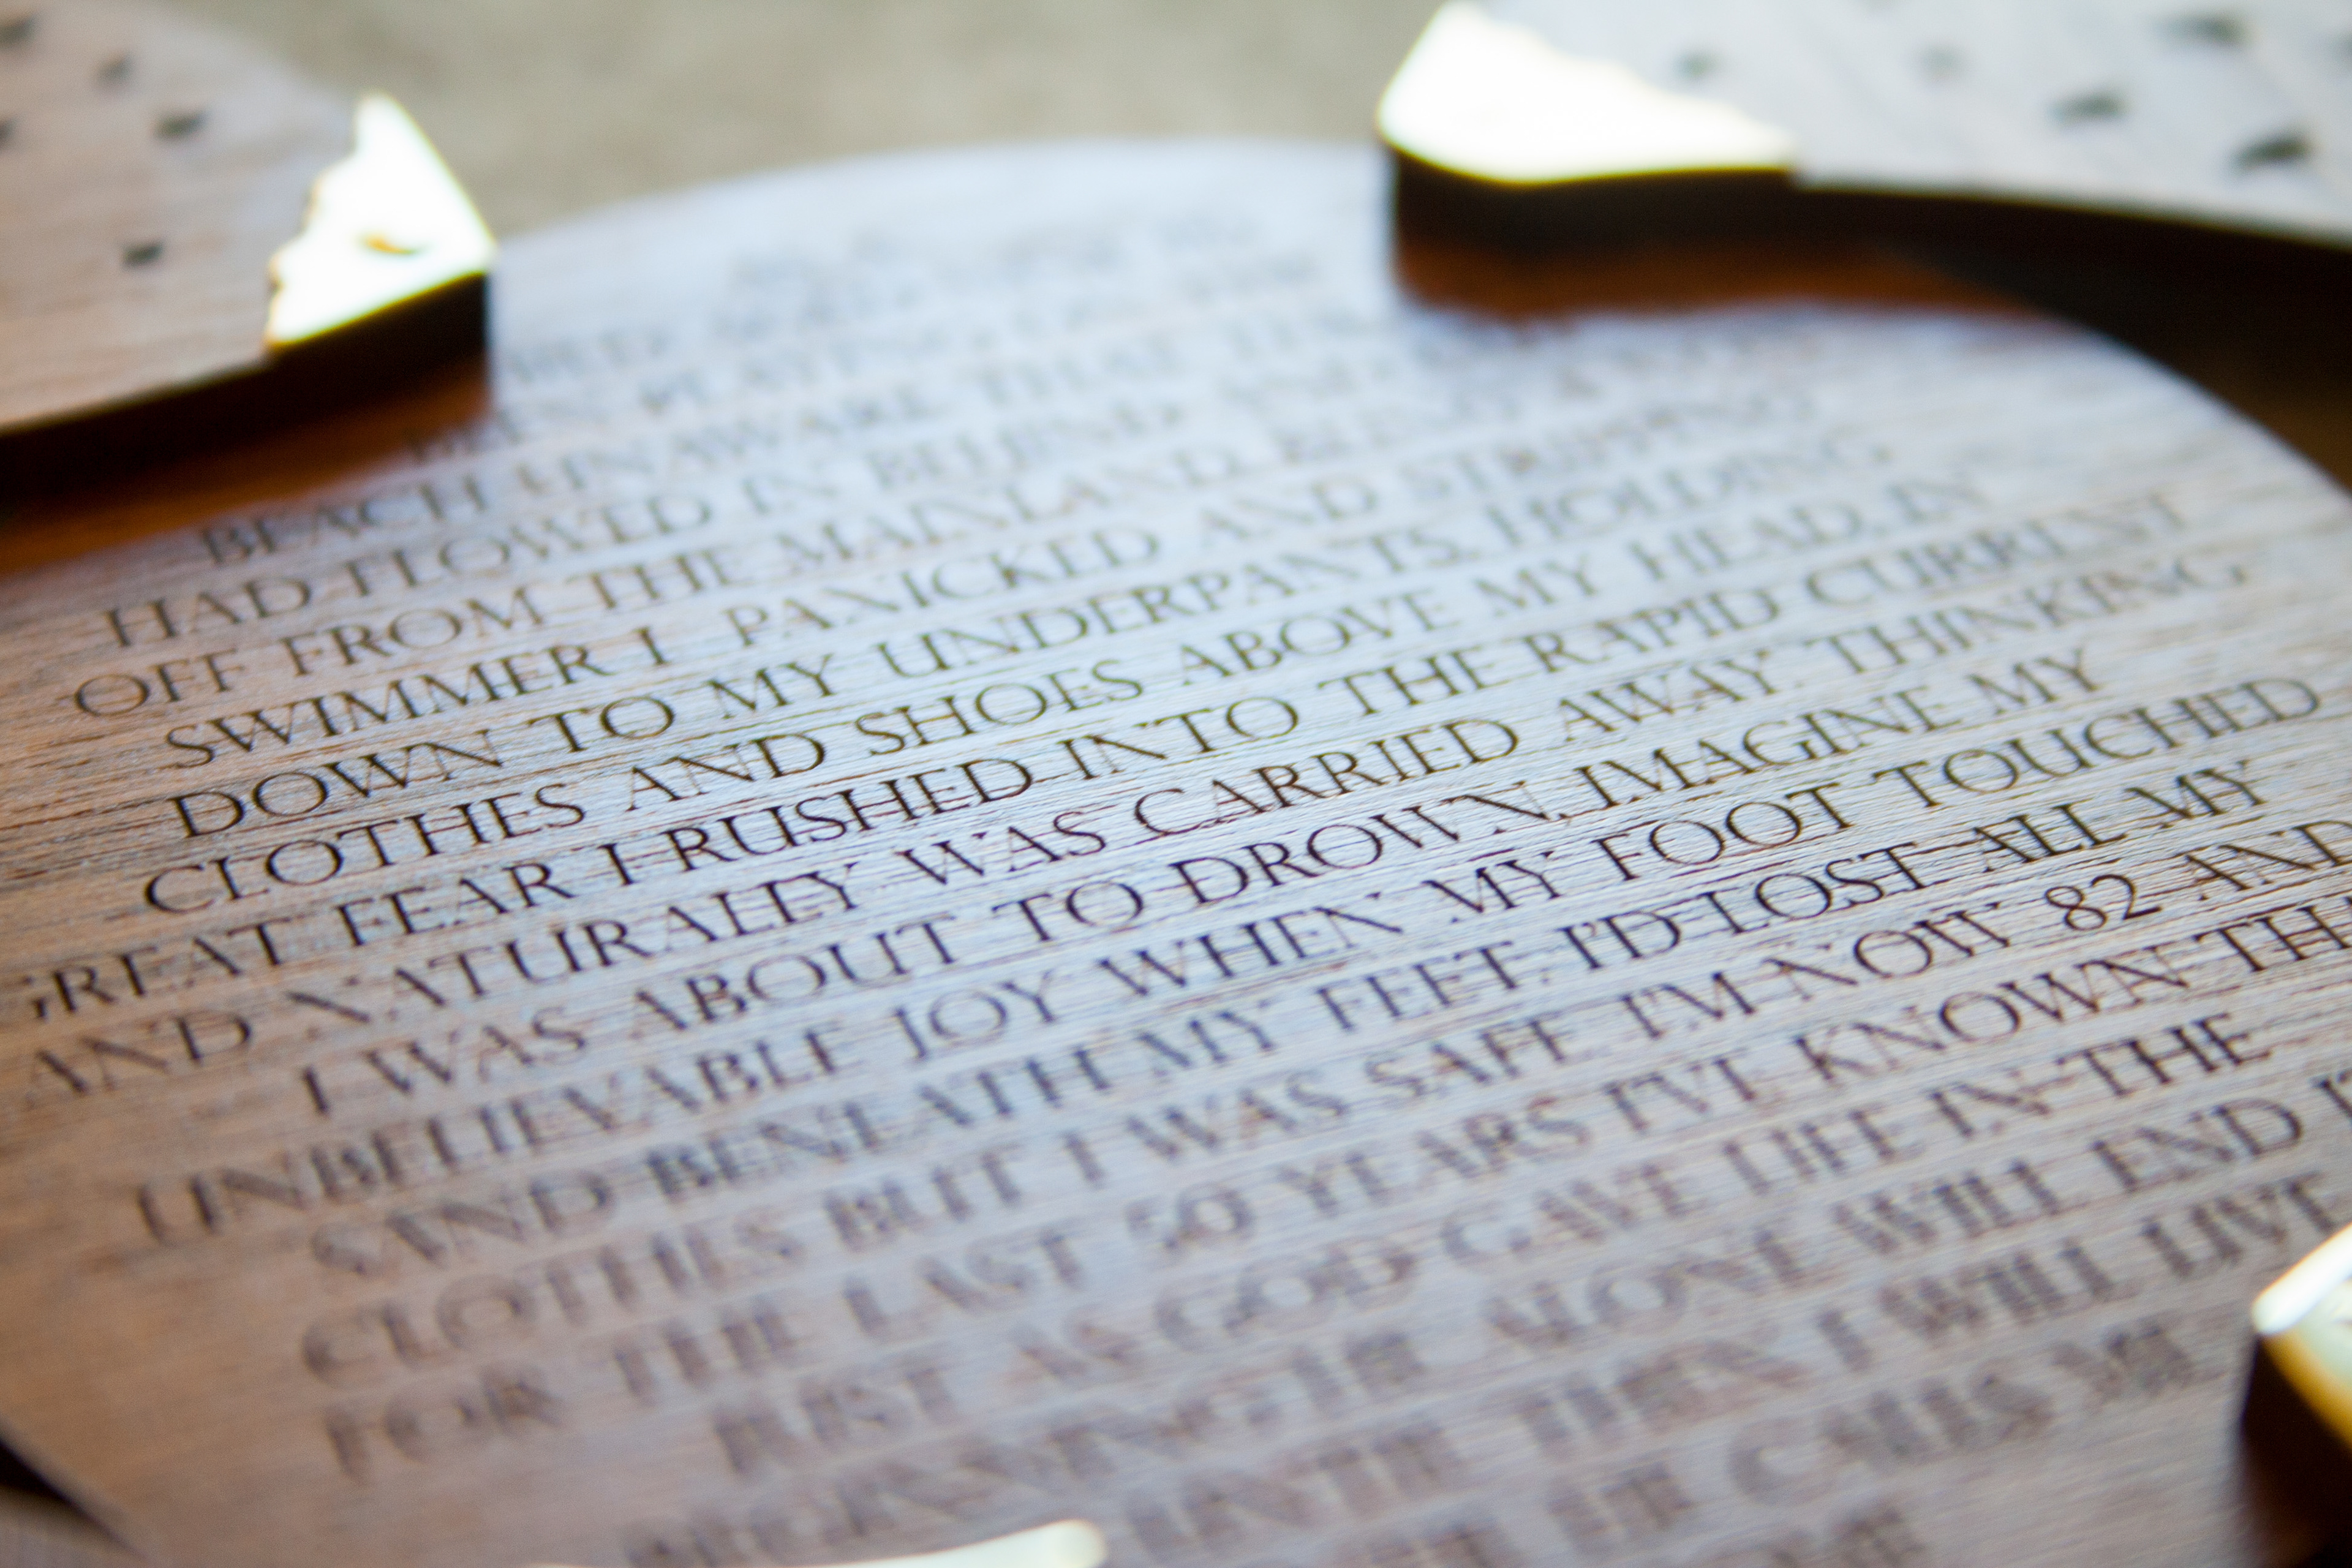 BEACH UNAWARE THAT THE
HAD FLOWED IN BEHIND
OFF FROM THE MAINLAND. BEING A
SWIMMER I PANICKED AND STRIPPING
DOWN TO MY UNDERPANTS, HOLDING
CLOTHES AND SHOES ABOVE MY HEAD, IN
GREAT FEAR I RUSHED INTO THE RAPID CURRENT
AND NATURALLY WAS CARRIED AWAY. THINKING
I WAS ABOUT TO DROWN, IMAGINE MY
UNBELIEVABLE JOY WHEN MY FOOT TOUCHED
SAND BENEATH MY FEET. I'D LOST ALL MY
CLOTHES BUT I WAS SAFE. I'M NOW 82 AND
FOR THE LAST 50 YEARS I'VE KNOWN TH
JUST AS GOD GAVE LIFE IN THE
BEGINNING HE ALONE WILL END I
UNTIL THEN I WILL LIVE
HE CALLS ME
HOME